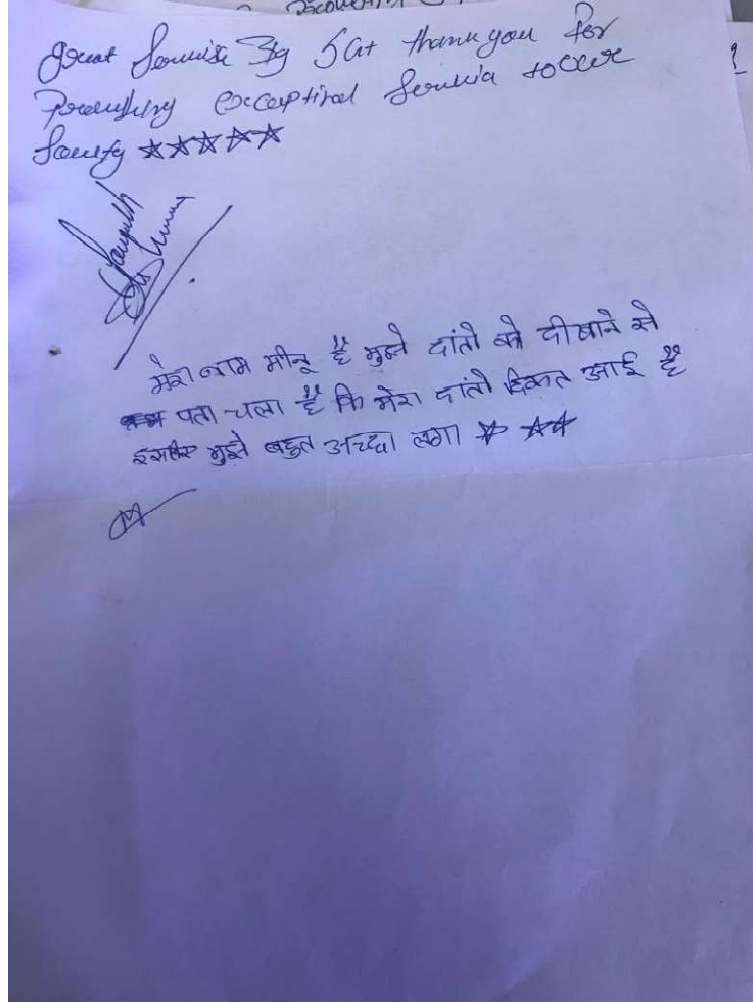 great Service By SGT thank you for
Providing exceptional Service to our
Society ★★★★★
मेरा नाम मीनू है मुझे दांतो को दीखाने से
पता चला है कि मेरा दांतो दिकत आई है
इसलिए मुझे बहुत अच्छा लगा ★ ★★